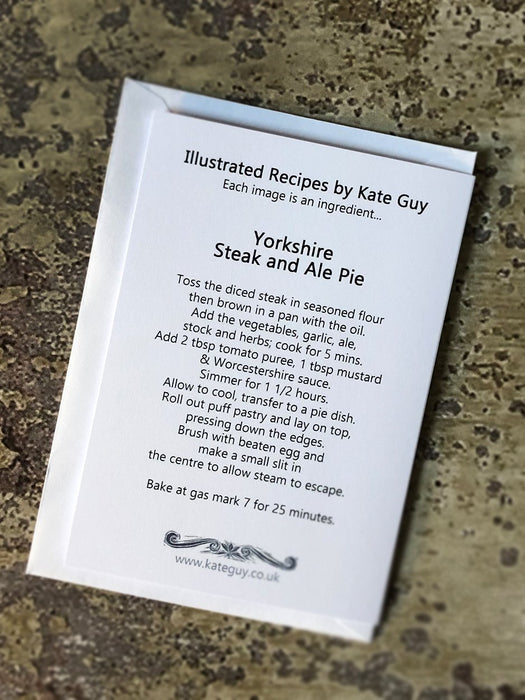 Illustrated Recipes by Kate Guy
Each image is an ingredient...
Yorkshire
Steak and Ale Pie
Toss the diced steak in seasoned flour
then brown in a pan with the oil.
Add the vegetables, garlic, ale,
stock and herbs; cook for 5 mins.
Add 2 tbsp tomato puree, 1 tbsp mustard
& Worcestershire sauce.
Simmer for 1 1/2 hours.
Allow to cool, transfer to a pie dish.
Roll out puff pastry and lay on top,
pressing down the edges.
Brush with beaten egg and
make a small slit in
the centre to allow steam to escape.
Bake at gas mark 7 for 25 minutes.
www.kateguy.co.uk